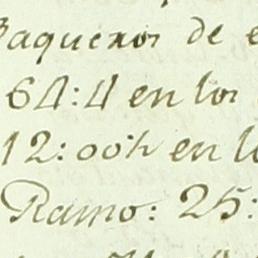 Baqueros de e
64:4 en los
12:00h en lo
Ramo: 25: